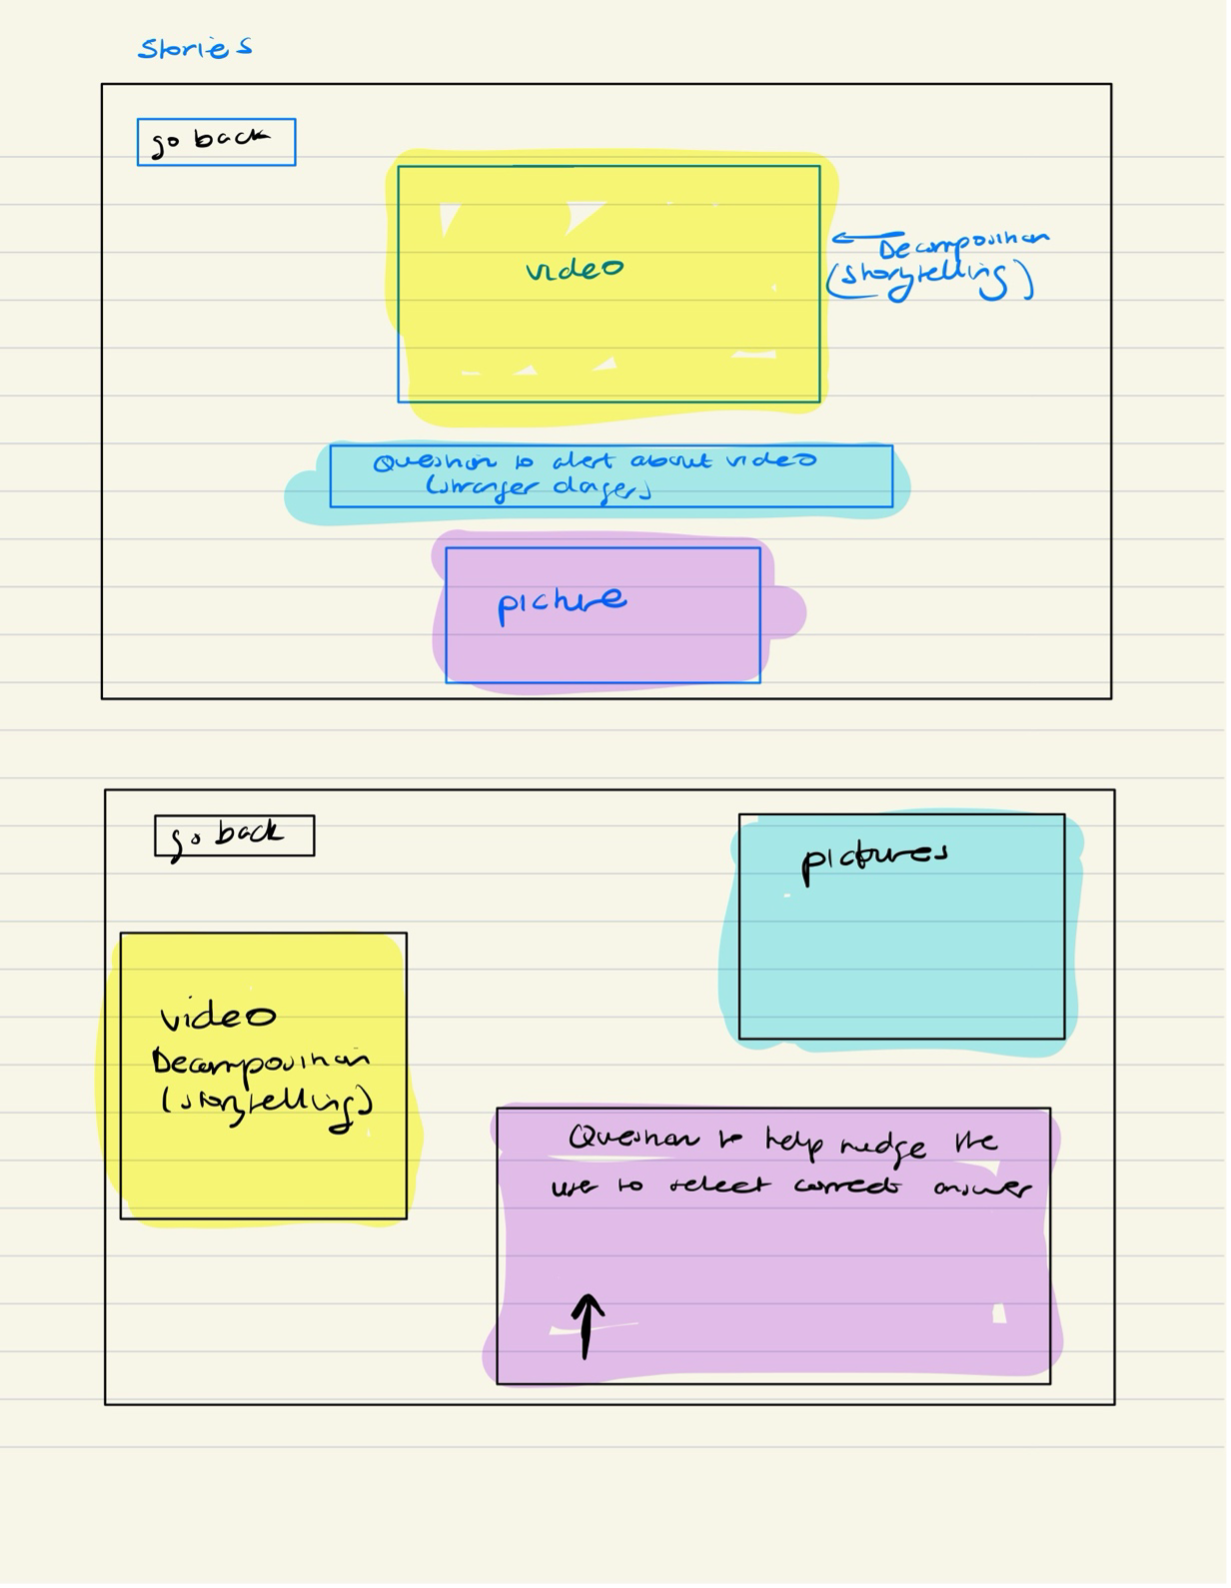 Stories
go back
video
Decomposition
(storytelling)
Question to alert about video
(stranger danger)
picture
go back
pictures
video
Decomposition
(storytelling)
Question to help nudge the
user to select correct answer